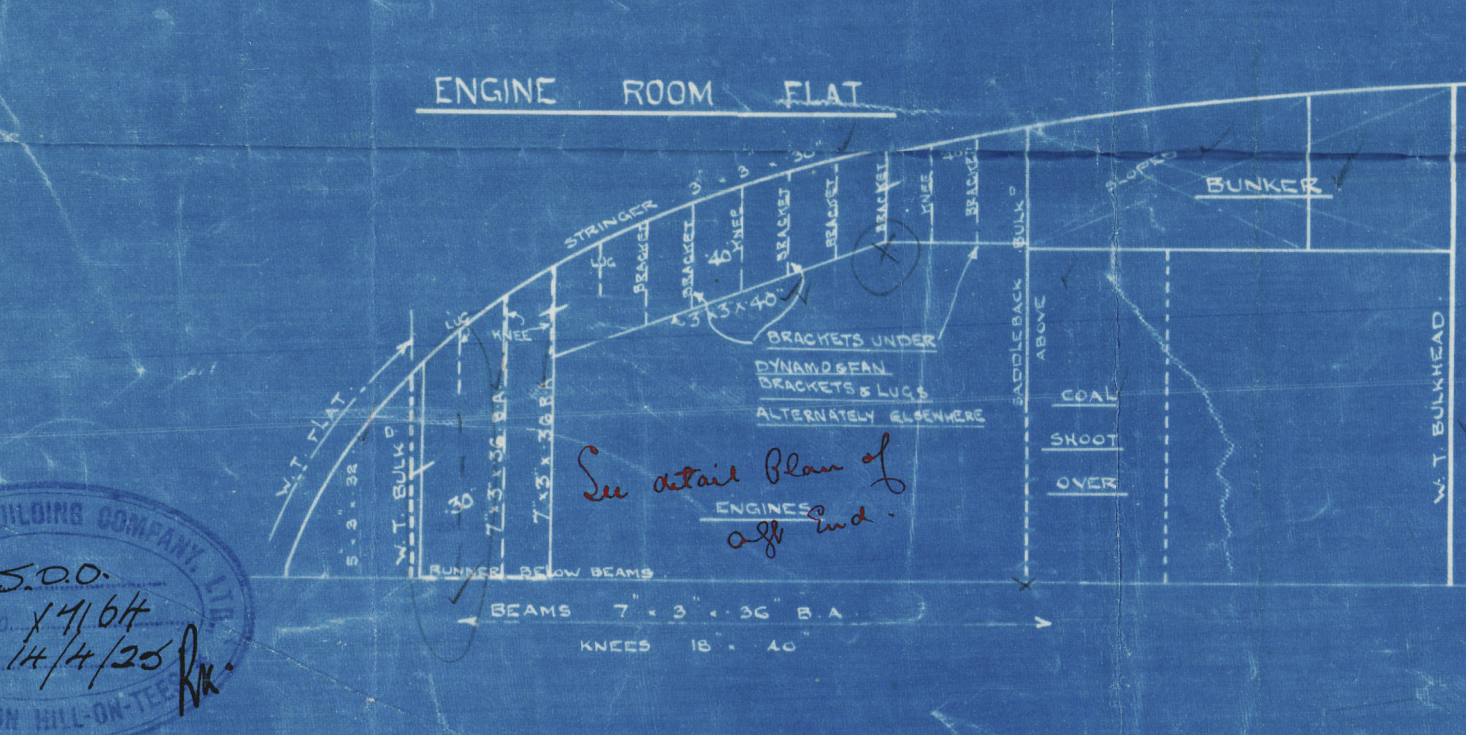 ENGINE ROOM FLAT
STRINGER 3" × 3" × 30"
40
SLOPED
BUNKER
LUG
BRACKET
BRACKET
40
KNEE
BRACKET
BRACKET
BRACKET
KNEE
BRACKET
3" × 3" × 40"
LUG
KNEE
BRACKETS UNDER
DYNAMO & FAN
BRACKETS & LUGS
ALTERNATELY ELSEWHERE
SADDLEBACK BULKD
ABOVE
COAL
SHOOT
OVER
W.T. BULKHEAD.
W.T. FLAT
5" × 3" × 32
W.T. BULKD
7" × 3" × 36 B A
7" × 3" × 36 B A
See detail Plan of
aft End.
ENGINES
BUNKER BELOW BEAMS
BEAMS 7" × 3" × 36" B.A.
KNEES 18" × 40"
BUILDING COMPANY, LTD.
S.D.O.
14/4/25
HILL-ON-TEES